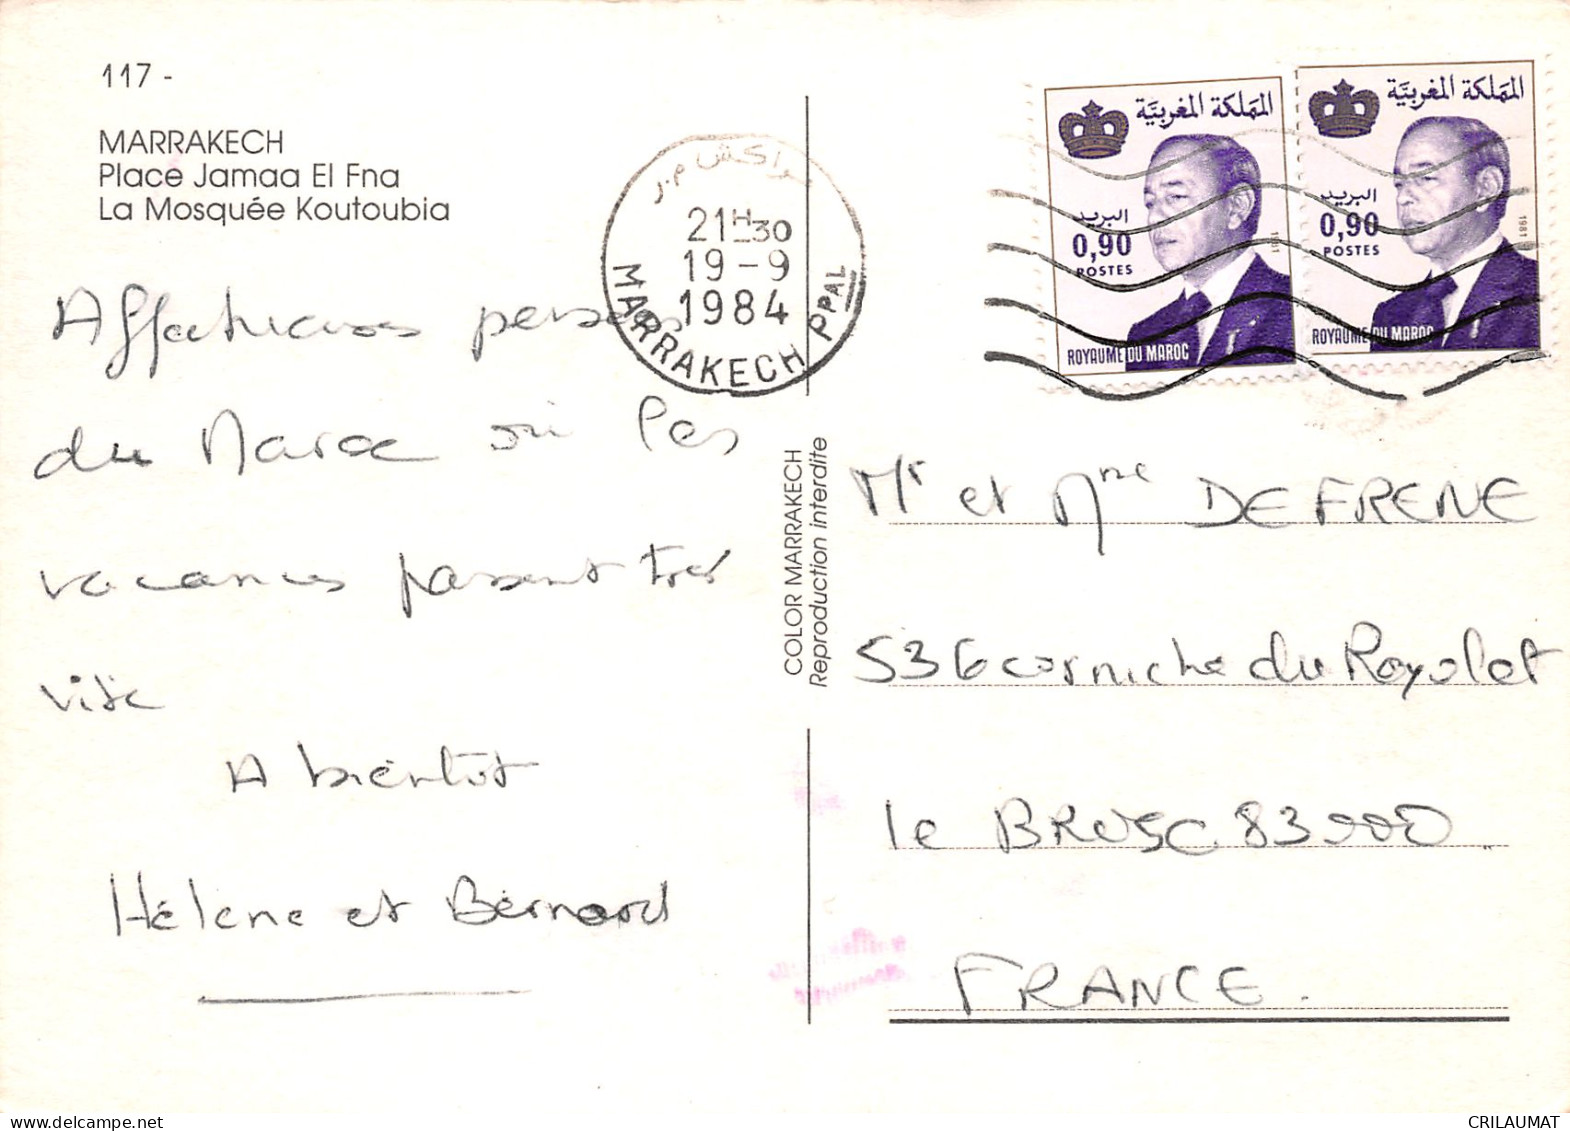 117 -
MARRAKECH
Place Jamaa El Fna
La Mosquée Koutoubia
Affectueuses pensées
du Maroc où les
vacances passent très
vite
A bientôt
Hélène et Bernard
مراكش م.ر
21H30
19-9
1984
MARRAKECH PPAL
COLOR MARRAKECH
Reproduction interdite
المملكة المغربية
البريد
0,90
POSTES
1981
ROYAUME DU MAROC
المملكة المغربية
البريد
0,90
POSTES
1981
ROYAUME DU MAROC
Mr et Mme DEFRENE
536 corniche du Rayolet
le BRUSC 83000
FRANCE.
delcampe.net
CRILAUMAT